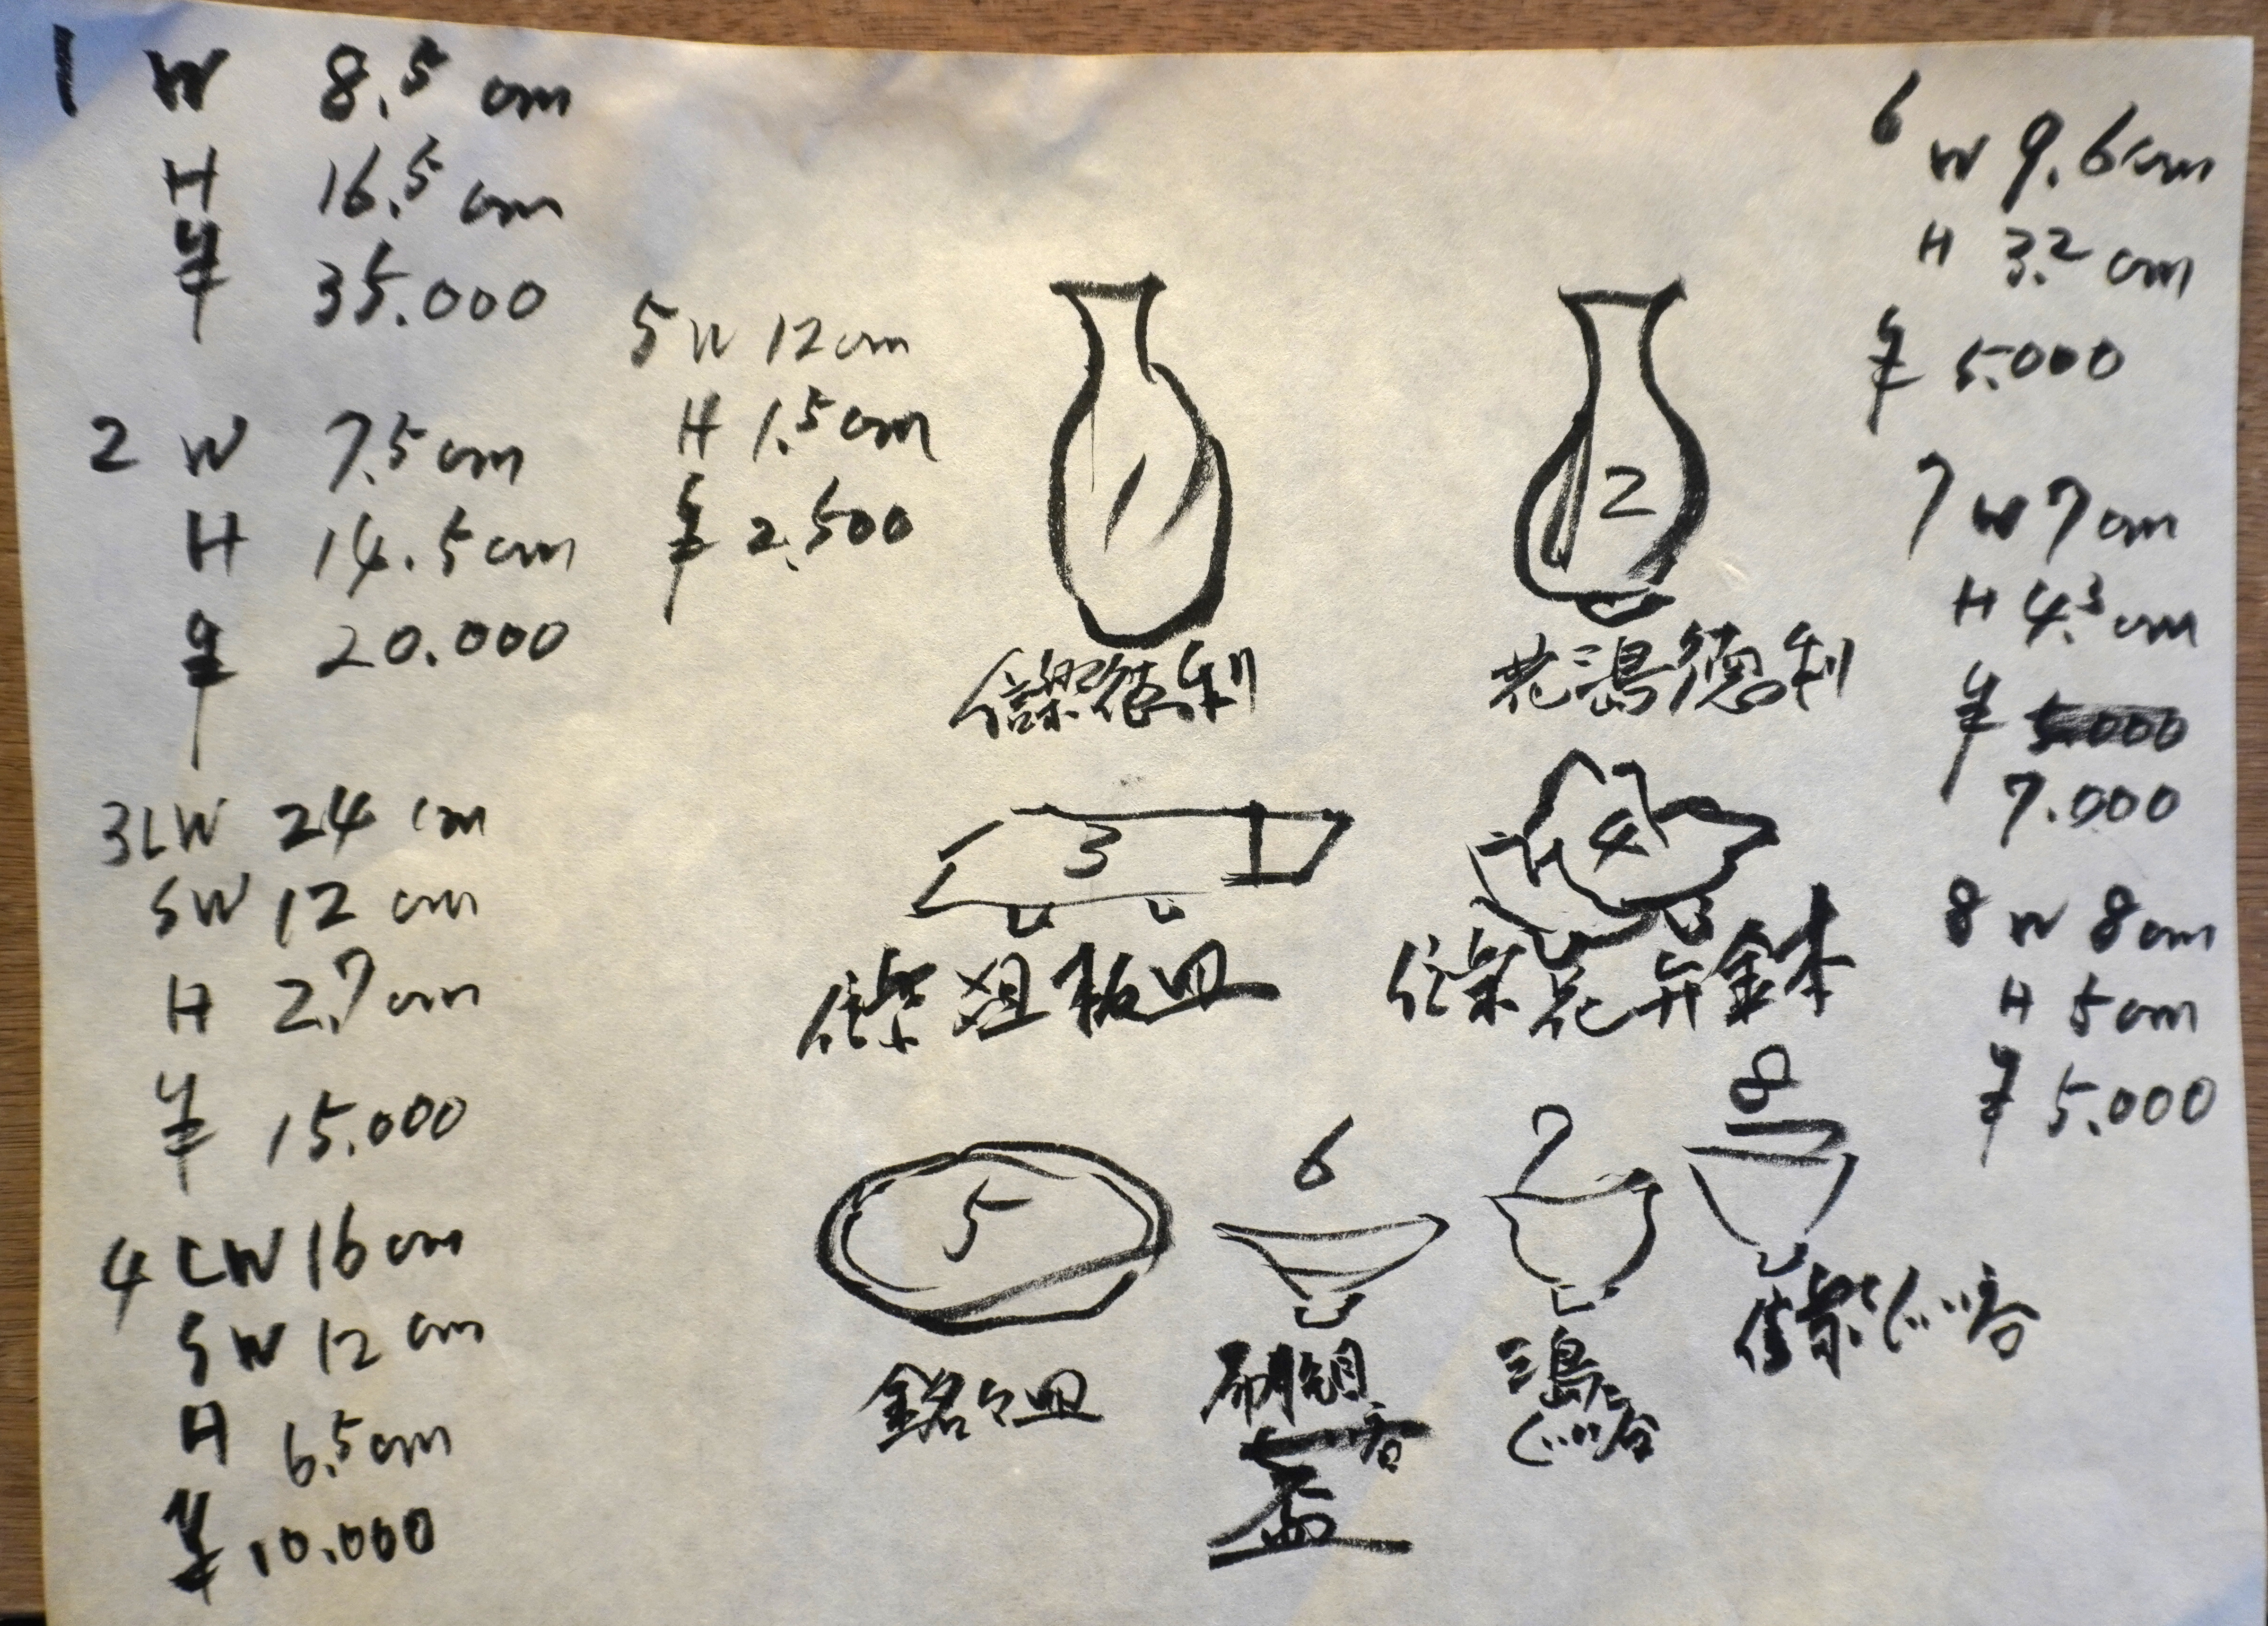 1 W 8.5 cm
H 16.5 cm
¥ 35.000
2 W 7.5 cm
H 14.5 cm
¥ 20.000
3 LW 24 cm
SW 12 cm
H 2.7 cm
¥ 15.000
4 LW 16 cm
SW 12 cm
H 6.5 cm
¥ 10.000
5 W 12 cm
H 1.5 cm
¥ 2.500
1
徳利
2
徳利
3
俎板皿
4
花弁鉢
5
銘々皿
6
盃
7
三島
ぐい呑
8
ぐい呑
6
W 9.6 cm
H 3.2 cm
¥ 5.000
7 W 7 cm
H 4.3 cm
¥ 5.000
7.000
8 W 8 cm
H 5 cm
¥ 5.000